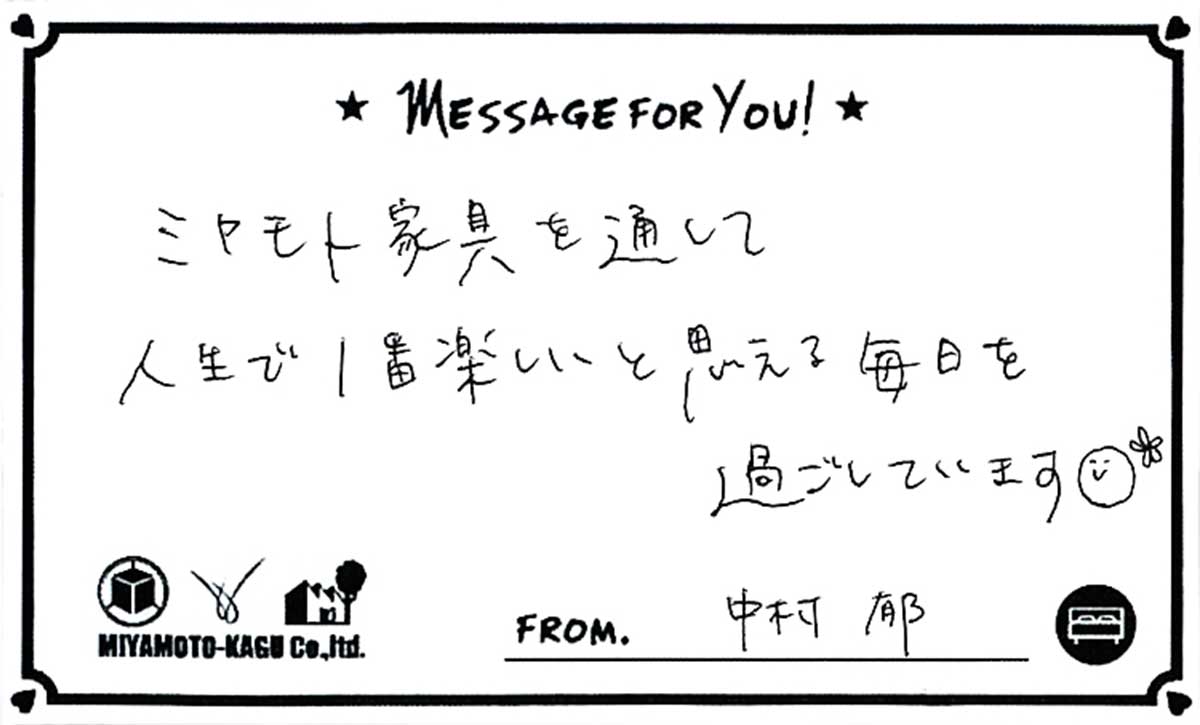 ★ MESSAGE FOR YOU! ★
ミヤモト家具を通して
人生で1番楽しいと思える毎日を
過ごしています
MIYAMOTO-KAGU Co.,ltd.
FROM. 中村 郁